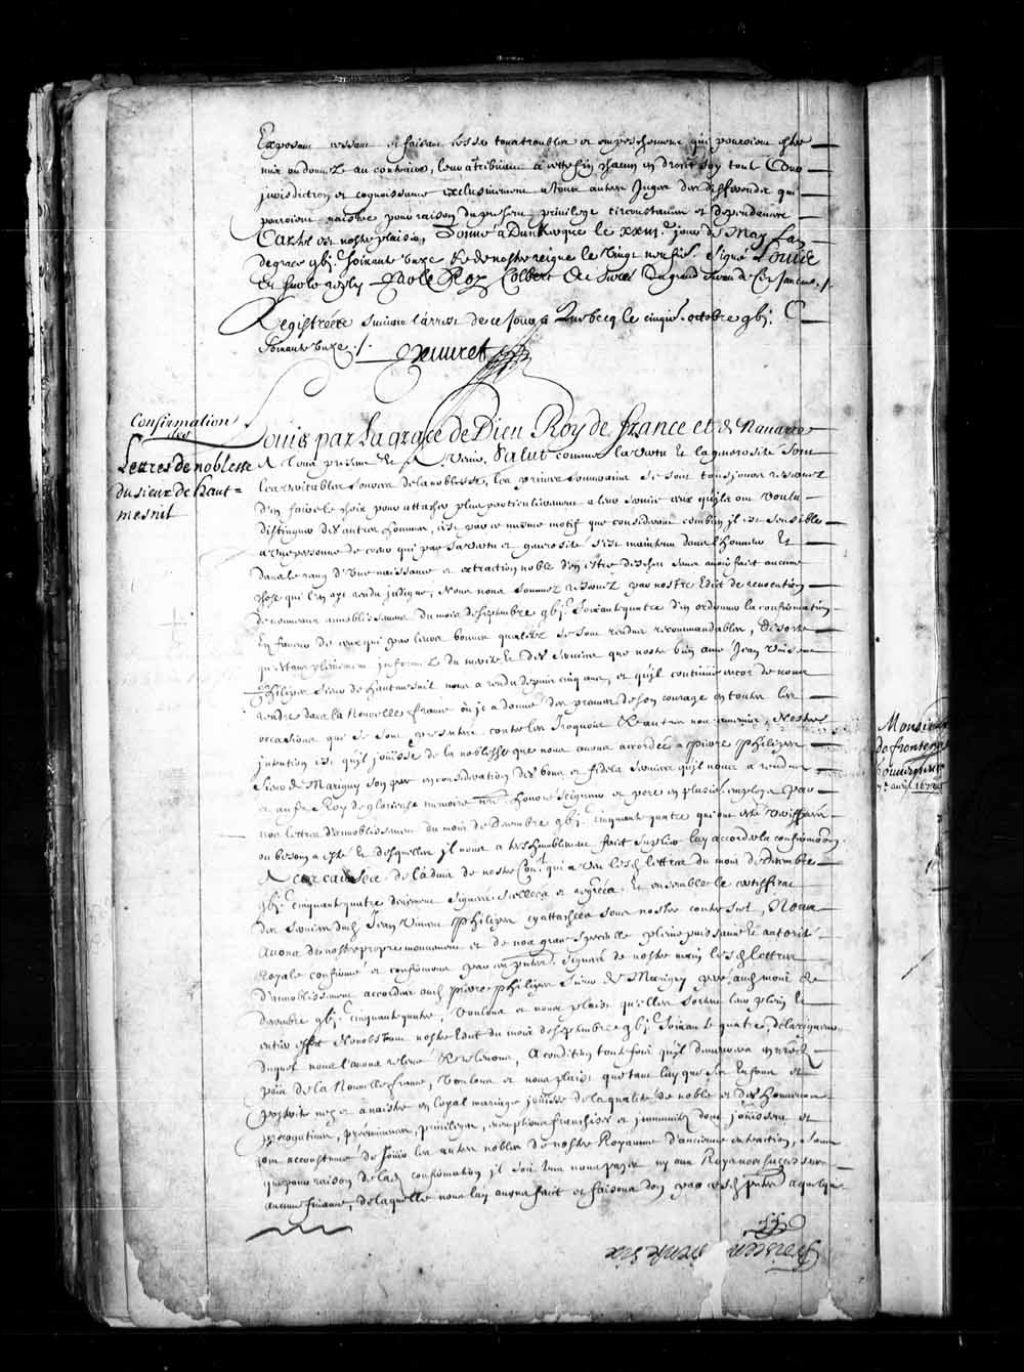 Exposant cessant et faisant cesser tous troubles et empeschemens qui pourroient estre
mis ou donnez au contraire, leur attribuant a cette fin chacun en droit soy toute Cour
jurisdiction et cognoissance exclusivement a tous autres Juges des differends qui
pourroient naistre pour raison du present privilege circonstances et dependances
Car tel est nostre plaisir, Donné a Dunkerque le xxiii.e jour de May l'an
de grace gbj.c soixante unze Et de nostre reigne le Vingt neufie. Signé Louis
Et sur le reply Par le Roy Colbert Et scellé du grand sceau de Cire jaune ./.
Registréées suivant l'arrest de ce jour a Quebecq le cinqie. octobre gbj.C
Soixante unze ./. Peuvret
Confirmation
des
Lettres de noblesse
du sieur de haut=
mesnil
Louis par la grace de Dieu Roy de france et de Navarre
A tous presens et A Venir, Salut comme la vertu et la generosité sont
les veritables sources de la noblesse, les princes souverains se sont tousjours
d'en faire le choix pour attacher plus particulierement a leur service ceux qu'ils ont voulu
distinguer des autres hommes, c'est par ce mesme motif que considerant combien il est sensible
a une personne de coeur qui par sa vertu et generosité s'est maintenu dans l'honneur Et
dans le rang d'une naissance et extraction noble d'en estre descheu sans avoir fait aucune
chose qui l'en ayt rendu indigne, Nous nous sommes par nostre Edit de revocation
de nouveaux annoblissemens du mois de septembre gbj.c soixante quatre d'en ordonner la confirmation
En faveur de ceux qui par leurs bonnes qualitez se sont rendus recommandables, De sorte
qu'estans pleinement informez du merite Et des services que nostre bien amé Jean Vincent
Philipes sieur de hautmesnil nous a rendu depuis cinq ans, et qu'il continue encor de nous
rendre dans la Nouvelle france où il a donné des preuves de son courage en toutes les
occasions qui se sont presentées contre les Iroquois Et autres nos ennemis, Nostre
intention est qu'il jouisse de la noblesse que nous avons accordée a pierre Philipes
sieur de Marigny son pere en consideration des bons et fideles services qu'il nous a rendus
et au feu Roy de glorieuse memoire nre. honoré seigneur et pere en plusie. employs par
nos lettres d'annoblissement du mois de Decembre gbj.c cinquante quatre qui ont esté veriffiées
ou besoin a esté Et desquelles il nous a tres humblement fait suplier luy accorder la confirmaon
A ces causes de l'advis de nostre Conl. qui a veu lesd. lettres du mois de Decembre
gbj.c cinquante quatre deuement signées scellées et regrées. Et ensemble le certifficat
des services dud. Jean Vincent Philipes cy attachées sous nostre contre scel, Nous
avons de nostre propre mouvement et de nos grace specialle pleine puissance et autorité
Royale confirmé et confirmons par ces pntes. signées de nostre main lesd. lettres
d'annoblissement accordées aud. pierre Philipes sieur de Marigny pere aud. mois de
decembre gbj.c cinquante quatre, Voulons et nous plaist qu'elles sortent leur plein Et
entier effet Nonobstant nostre Edit du mois de septembre gbj.c soixante quatre, de la rigueur
duquel nous l'avons relevé Et relevons, A condition toutefois qu'il demeurera
païs de la Nouvelle france, Voulons et nous plaist que tant luy que ses Enfans et
posterité nez et a naistre en loyal mariage jouissent de la qualité de noble et des honneurs
prerogatives, préeminences, privileges, exemptions franchises et immunitez dont jouissent et
ont accoustumé de jouir les autres nobles de nostre Royaume d'ancienne extraction, sans
que pour raison de lad. confirmation il soit tenu nous payer ny aux Roys nos successeurs
aucune finance, de laquelle nous luy avons fait et faisons don par cesd. pntes. a quelque
Monsieur
de frontenac
Gouverneur
avril 1672
trente six